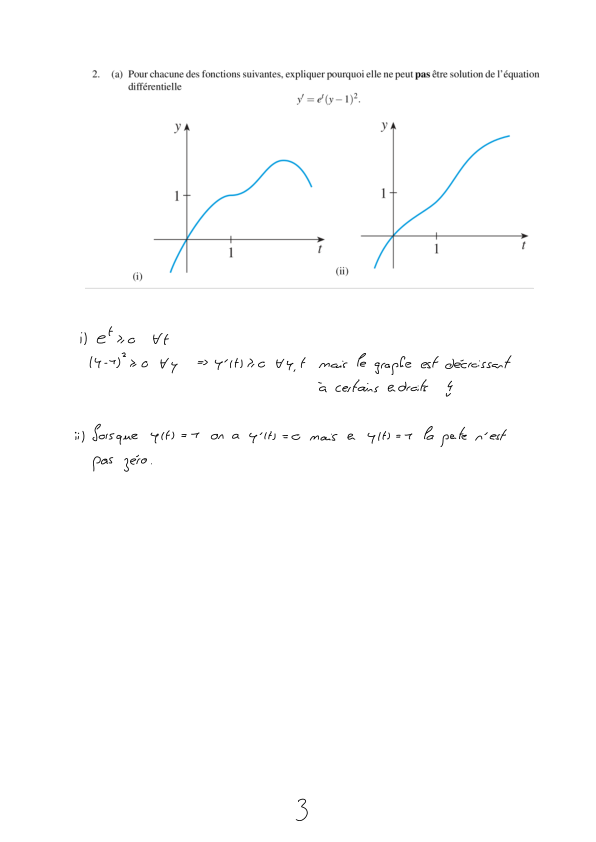 2. (a) Pour chacune des fonctions suivantes, expliquer pourquoi elle ne peut pas être solution de l'équation
différentielle
y′ = eᵗ(y − 1)².
y
1
1
t
(i)
y
1
1
t
(ii)
i) eᵗ ⩾ 0 ∀t
(y-1)² ⩾ 0 ∀y => y'(t) ⩾ 0 ∀y,t mais le graphe est décroissant
à certains edroits ↯
ii) Lorsque y(t) = 1 on a y'(t) = 0 mais e y(t) = 1 la pete n'est
pas zéro.
3